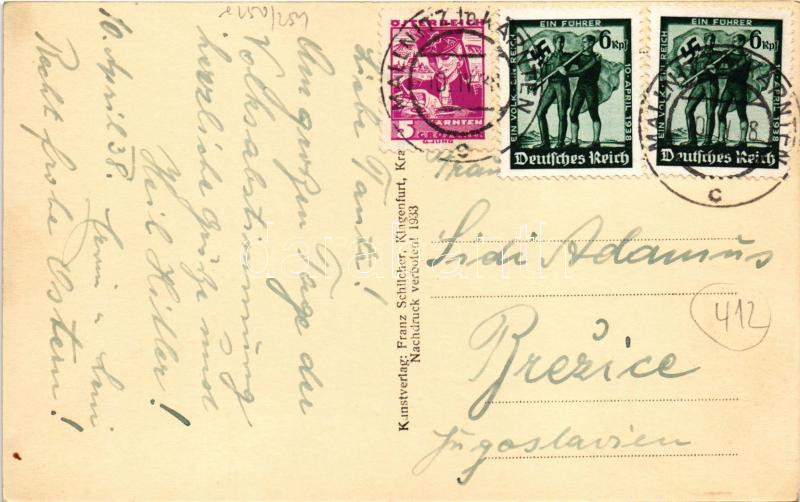 e 250/251
Liebe Tante!
Am großen Tage der
Volksabstimmung
herzliche Grüße und
Heil Hitler!
10. April 38.
Recht frohe Ostern!
Kunstverlag: Franz Schilcher, Klagenfurt,
Nachdruck verboten! 1933
ÖSTERREICH
KÄRNTEN
5 GROSCHEN
G. JUNG
MALLNITZ in KÄRNTEN
c
EIN FÜHRER
EIN VOLK EIN REICH
10. APRIL 1938
6 Rpf
Deutsches Reich
EIN FÜHRER
EIN VOLK EIN REICH
10. APRIL 1938
6 Rpf
Deutsches Reich
MALLNITZ in KÄRNTEN
c
Frau
Lidi Adamus
Brežice
Jugoslavien
412
darabanth